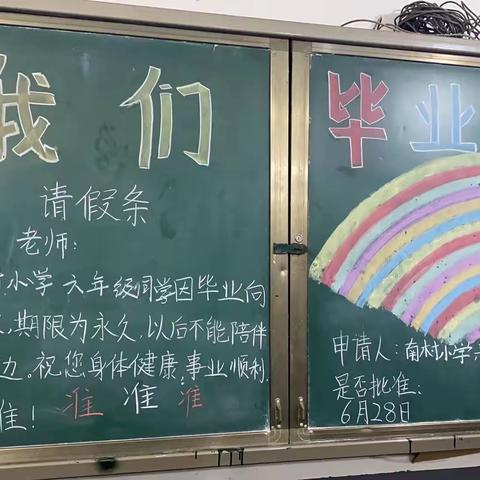 我们
毕业
请假条
老师:
小学 六年级同学因毕业向
,期限为永久,以后不能陪伴
边。祝您身体健康,事业顺利.
准! 准 准 准
申请人:南村小学
是否批准:
6月28日